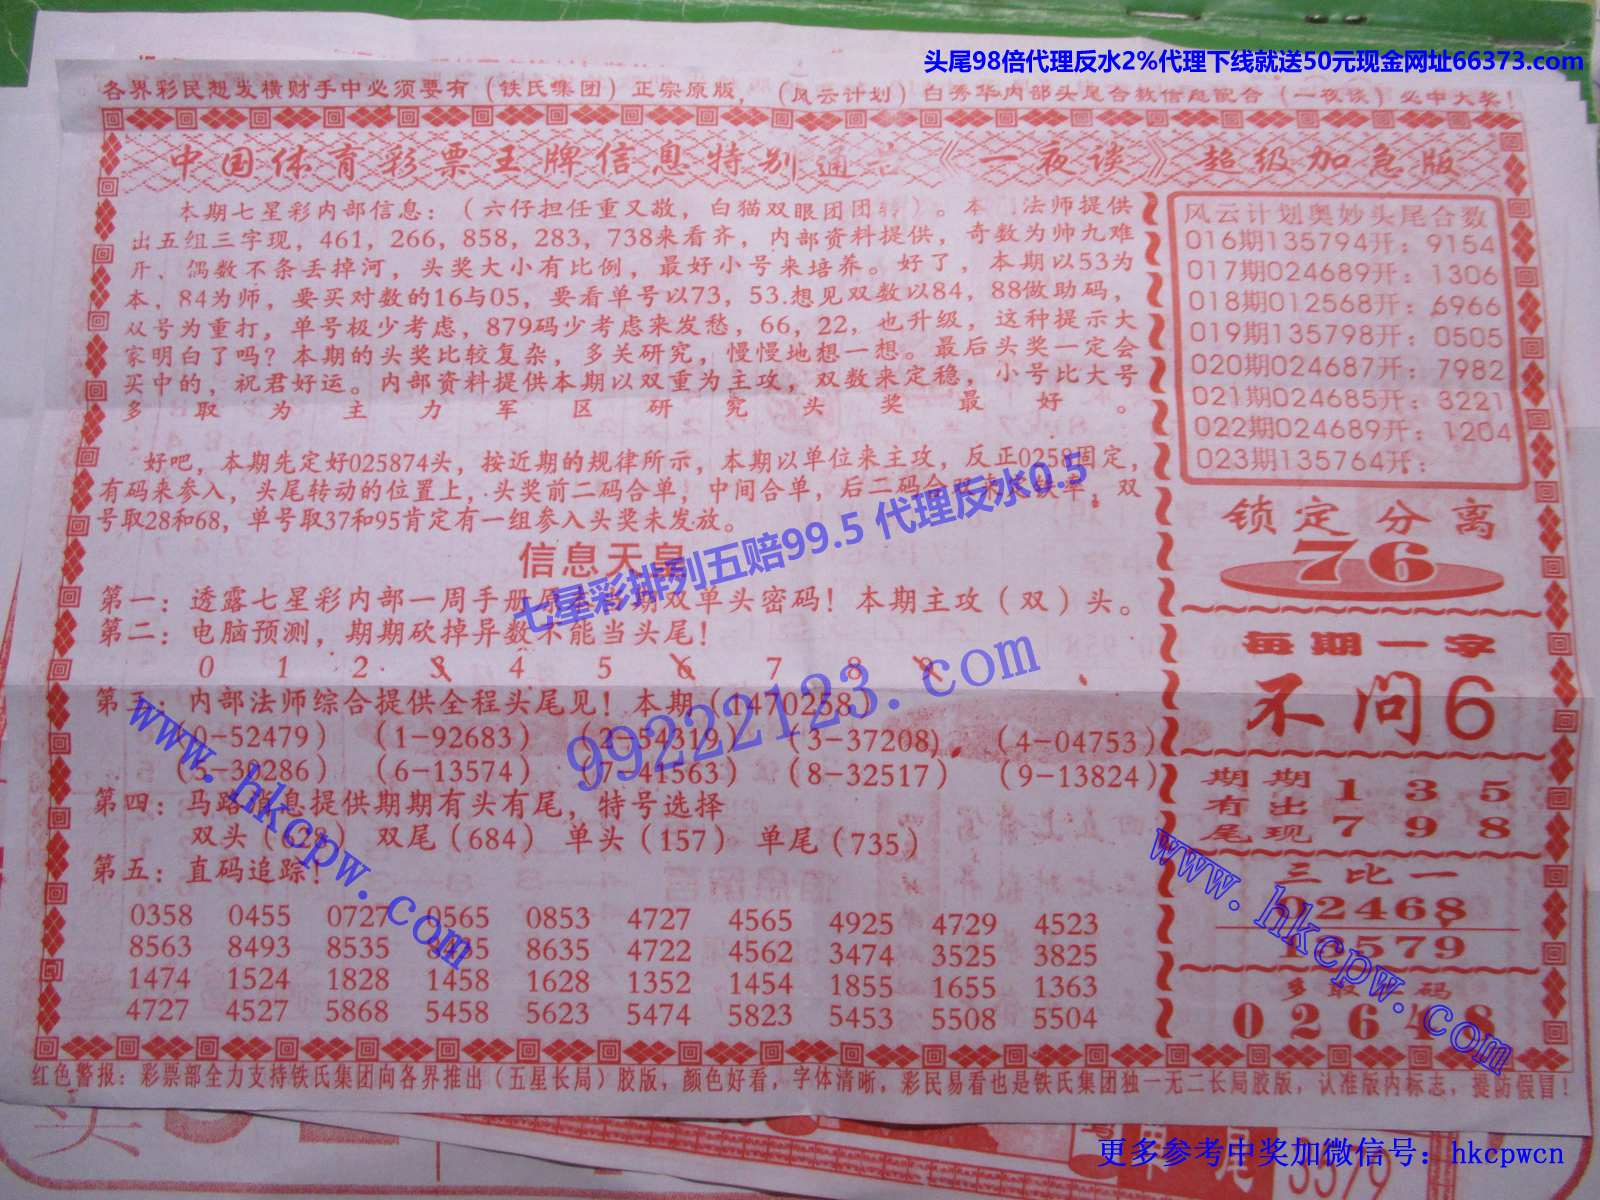 头尾98倍代理反水2%代理下线就送50元现金网址66373.com
各界彩民想发横财手中必须要有（铁氏集团）正宗原版，（风云计划）白秀华内部头尾合数信息配合（一夜谈）必中大奖！
中国体育彩票王牌信息特别通 《一夜谈》超级加急版
本期七星彩内部信息：（六仔担任重又敬，白猫双眼团团转）。本 法师提供
出五组三字现，461，266，858，283，738来看齐，内部资料提供，奇数为帅九难
开、偶数不条丢掉河，头奖大小有比例，最好小号来培养。好了，本期以53为
本，84为师，要买对数的16与05，要看单号以73，53.想见双数以84，88做助码，
双号为重打，单号极少考虑，879码少考虑来发愁，66，22，也升级，这种提示大
家明白了吗？本期的头奖比较复杂，多关研究，慢慢地想一想。最后头奖一定会
买中的，祝君好运。内部资料提供本期以双重为主攻，双数来定稳，小号比大号
多取为主力军区研究头奖最好。
好吧，本期先定好025874头，按近期的规律所示，本期以单位来主攻，反正0258固定，
有码来参入，头尾转动的位置上，头奖前二码合单，中间合单，后二码合双来 铁率，双
号取28和68，单号取37和95肯定有一组参入头奖未发放。
信息天皇
第一：透露七星彩内部一周手册 期双单头密码！本期主攻（双）头。
第二：电脑预测，期期砍掉异数不能当头尾！
0 1 2 3 4 5 6 7 8 9
第三：内部法师综合提供全程头尾见！本期（1470258）
（0-52479） （1-92683） （2-54319） （3-37208） （4-04753）
（5-30286） （6-13574） （7-41563） （8-32517） （9-13824）
第四：马路信息提供期期有头有尾，特号选择
双头（628） 双尾（684） 单头（157） 单尾（735）
第五：直码追踪！
0358 0455 0727 0565 0853 4727 4565 4925 4729 4523
8563 8493 8535 8435 8635 4722 4562 3474 3525 3825
1474 1524 1828 1458 1628 1352 1454 1855 1655 1363
4727 4527 5868 5458 5623 5474 5823 5453 5508 5504
风云计划奥妙头尾合数
016期135794开：9154
017期024689开：1306
018期012568开：6966
019期135798开：0505
020期024687开：7982
021期024685开：3221
022期024689开：1204
023期135764开：
锁定分离
76
每期一字
不问6
期期 1 3 5
有出
尾现 7 9 8
三比一
02468
13579
多取 码
02648
红色警报：彩票部全力支持铁氏集团向各界推出（五星长局）胶版，颜色好看，字体清晰，彩民易看也是铁氏集团独一无二长局胶版，认准版内标志，提防假冒！
七星彩排列五赔99.5 代理反水0.5
99222123.com
www.hkcpw.com
www.hkcpw.com
尾
3379
更多参考中奖加微信号：hkcpwcn